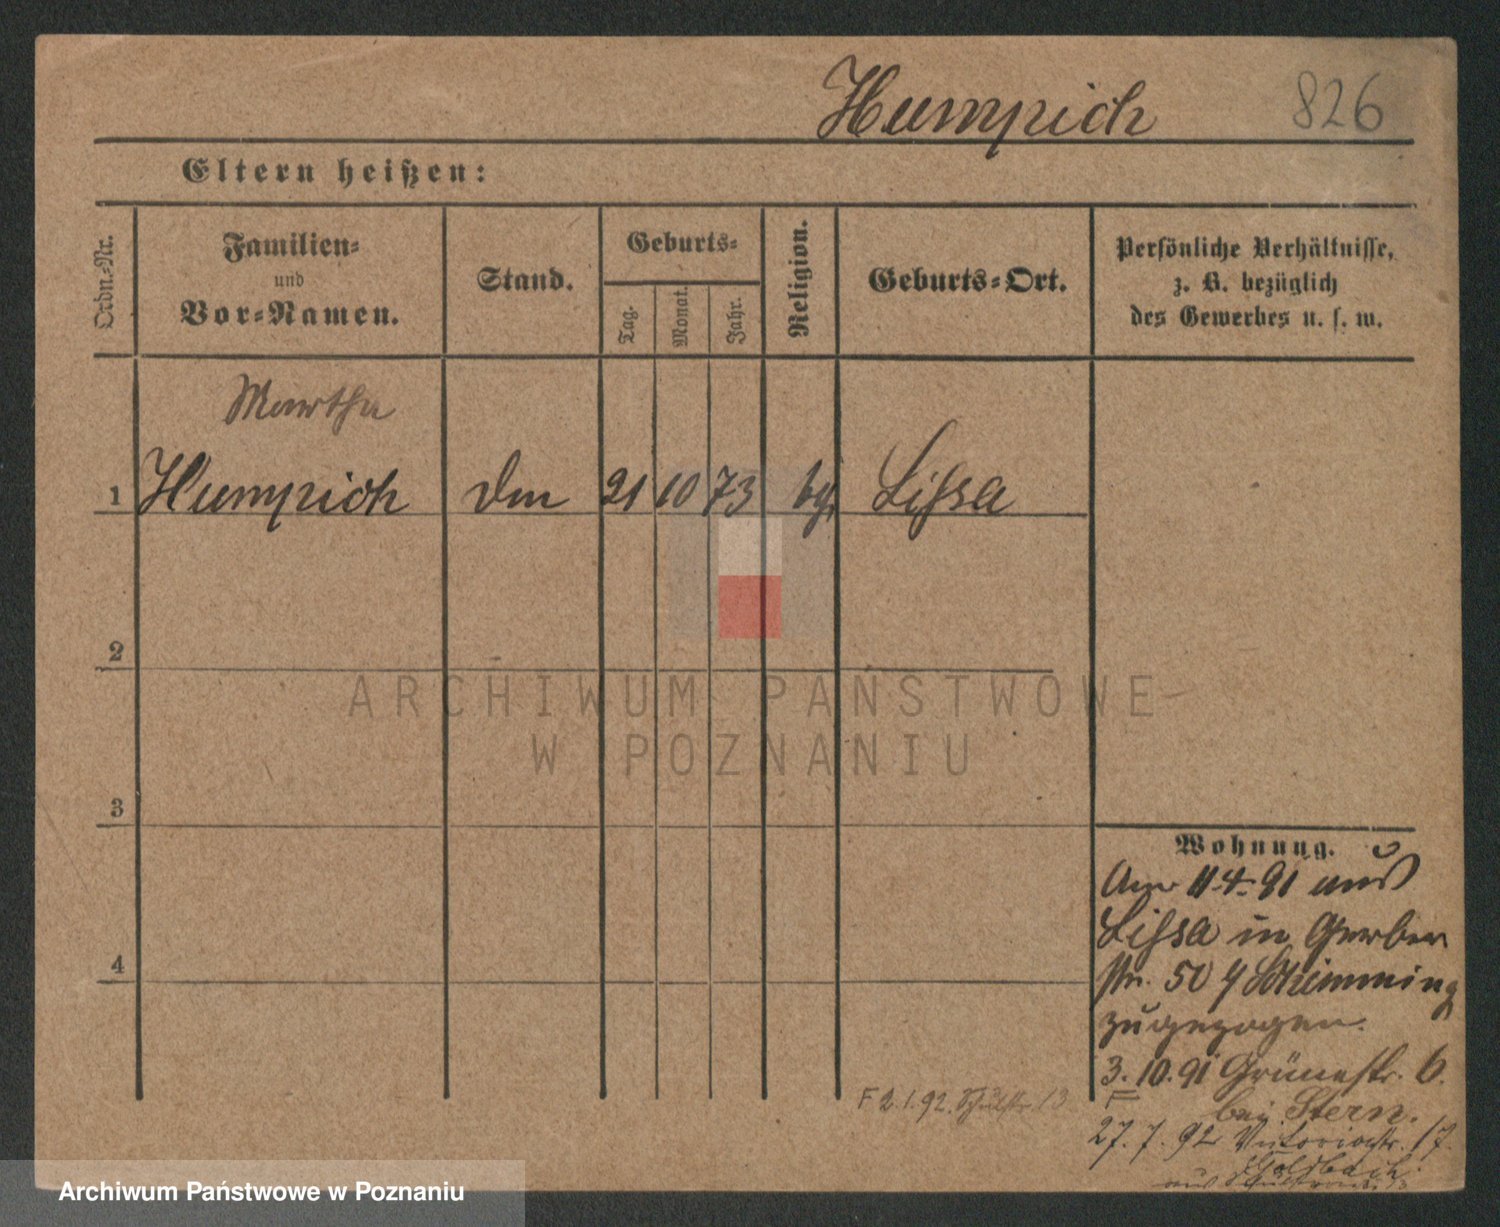 Humpich 826
Eltern heißen:
Ordn.-Nr.
Familien-
und
Vor-Namen.
Stand.
Geburts-
Tag.
Monat.
Jahr.
Religion.
Geburts-Ort.
Persönliche Verhältnisse,
z. B. bezüglich
des Gewerbes u. s. w.
Martha
1 Humpich 21 10 73 Lissa
2
3
4
ARCHIWUM PAŃSTWOWE
W POZNANIU
Wohnung.
11.4.91 aus
Lissa in Gerber
str. 50 Schimming
zugezogen.
3.10.91 Grünestr. 6.
bei Stern.
F 2.1.92. Schulstr. 13
27.7.92 Victoriastr. 17.
Goldbach
aus Schulstrasse 13
Archiwum Państwowe w Poznaniu